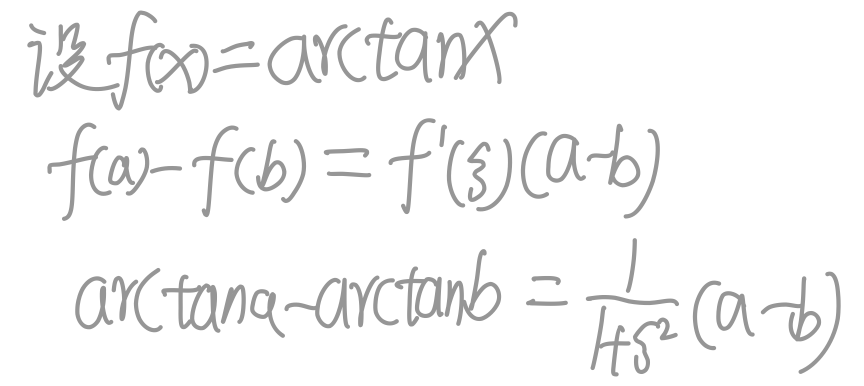 设f(x)=arctanx
f(a)-f(b)=f'(ξ)(a-b)
arctana-arctanb=\frac{1}{1+ξ²}(a-b)